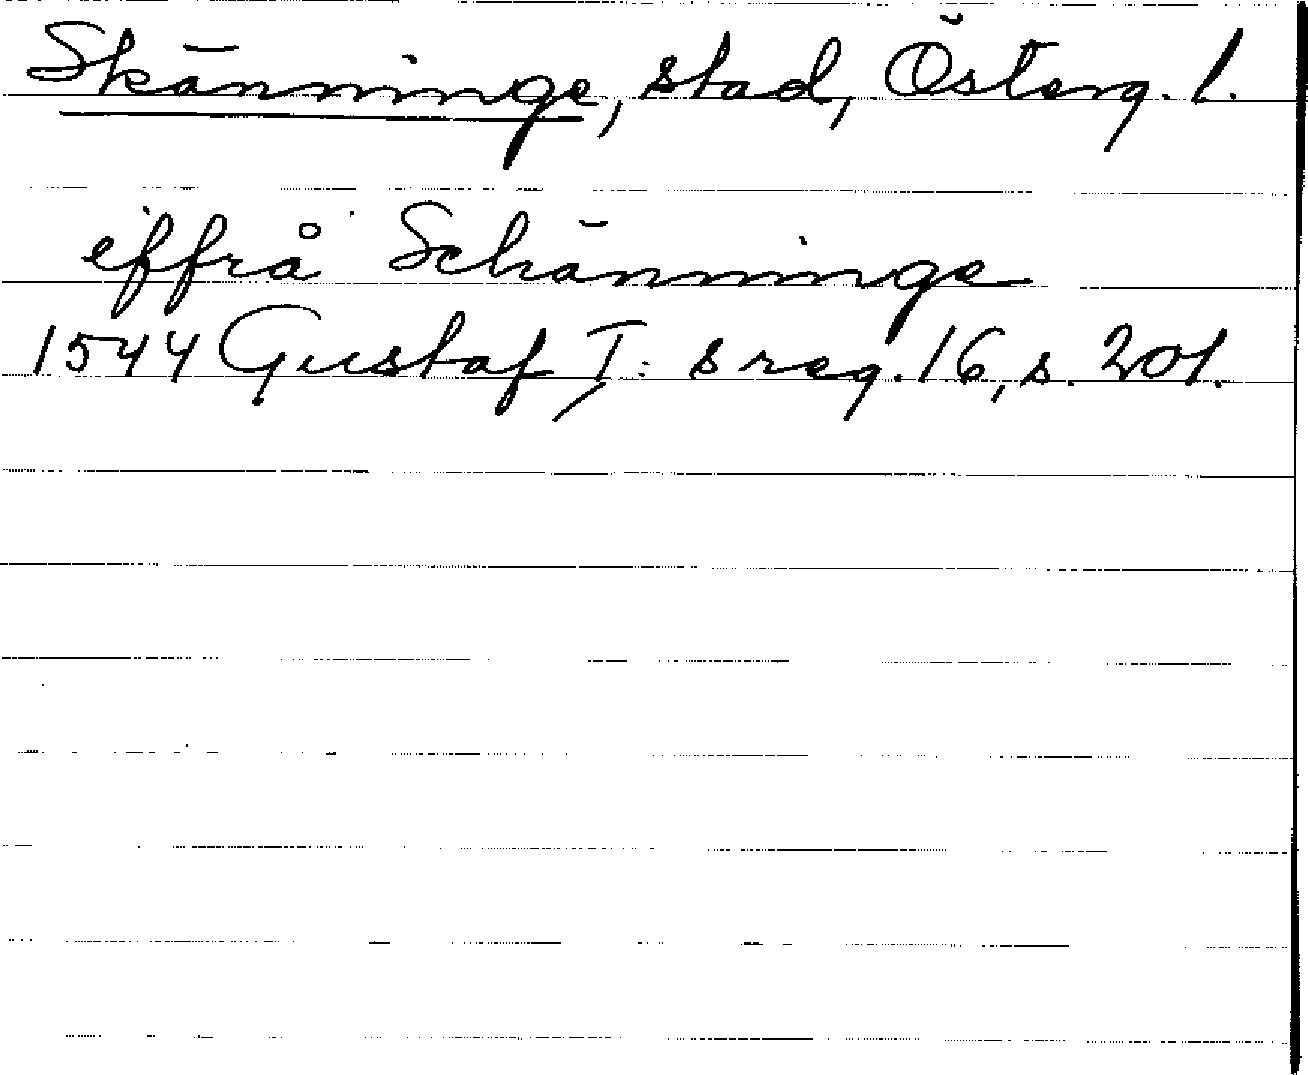 Skänninge, stad, Österg. l.
iffrå Schänninge
1544 Gustaf I: s reg. 16, s. 201.